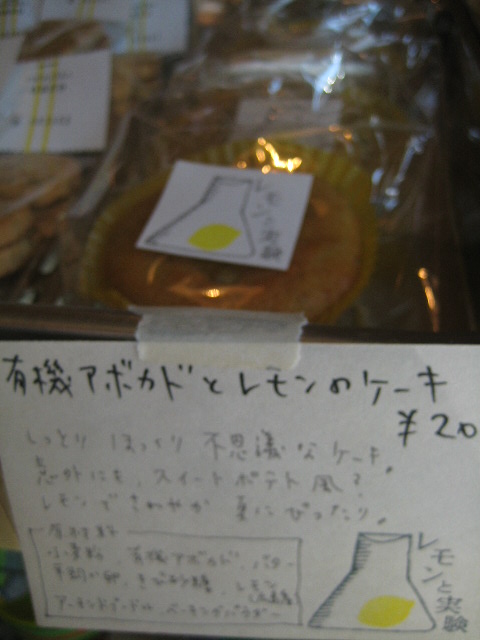 レモンと実験
有機アボカドとレモンのケーキ
¥20
しっとり ほっくり 不思議なケーキ。
意外にも、スイートポテト風?
レモンでさわやか 夏にぴったり。
原材料
小麦粉、有機アボカド、バター
平飼い卵、きび砂糖、レモン
アーモンドプードル、ベーキングパウダー
レモンと実験